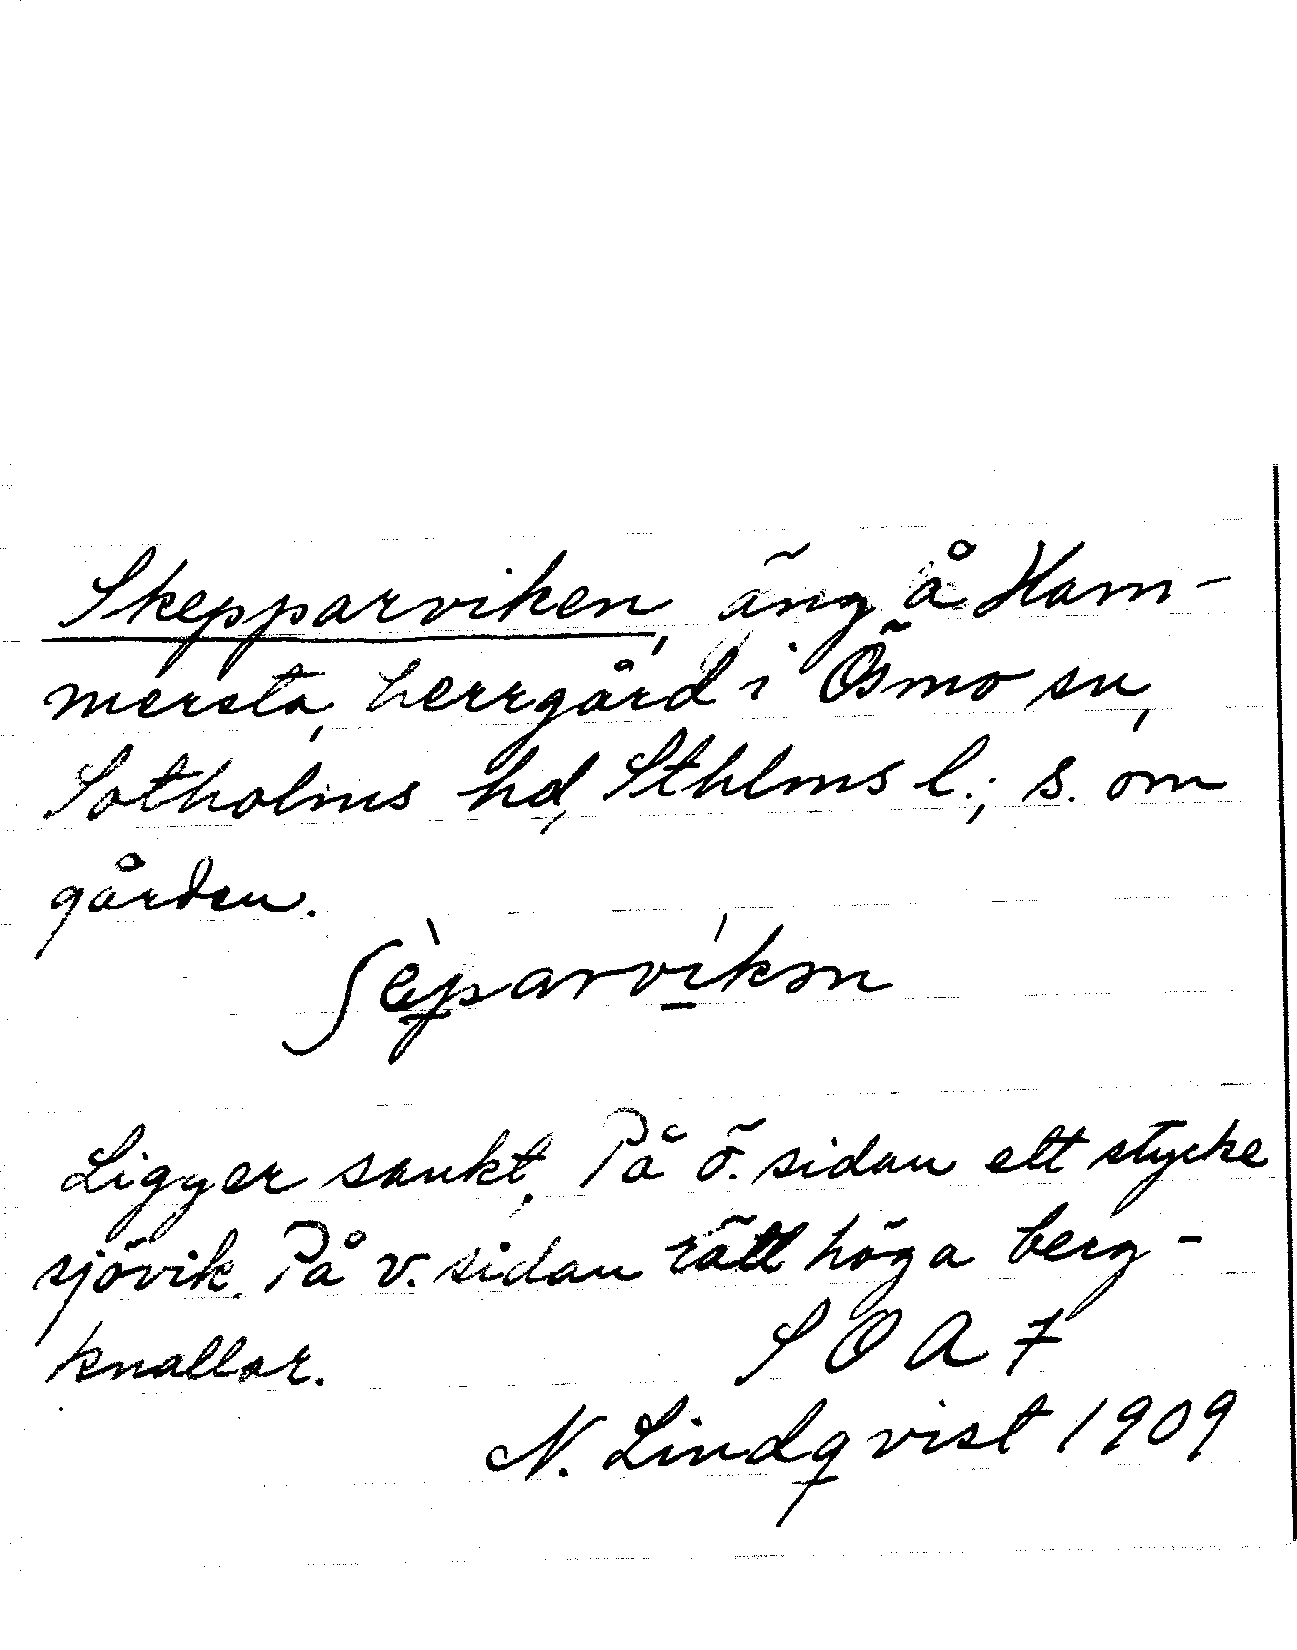 Skepparviken, äng å Ham-
mersta, herrgård i Ösmo sn,
Sotholms hd, Sthlms l.; s. om
gården.
ʃèparvíkən
Ligger sankt. På ö. sidan ett stycke
sjövik. På v. sidan rätt höga berg-
knallar.
S O A F
N. Lindqvist 1909